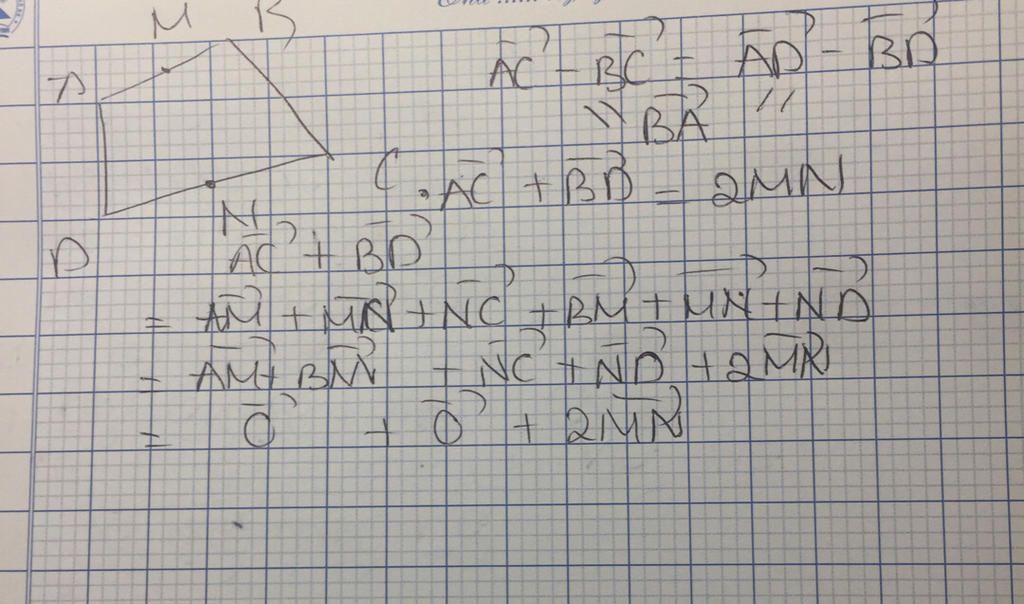 M B
A
AC⃗ - BC⃗ = AD⃗ - BD⃗
\\ BA⃗ //
C
. AC⃗ + BD⃗ = 2MN
N
D
AC⃗ + BD⃗
= AM⃗ + MN⃗ + NC⃗ + BM⃗ + MN⃗ + ND⃗
= AM⃗ + BM⃗ + NC⃗ + ND⃗ + 2MN⃗
= O⃗ + O⃗ + 2MN⃗